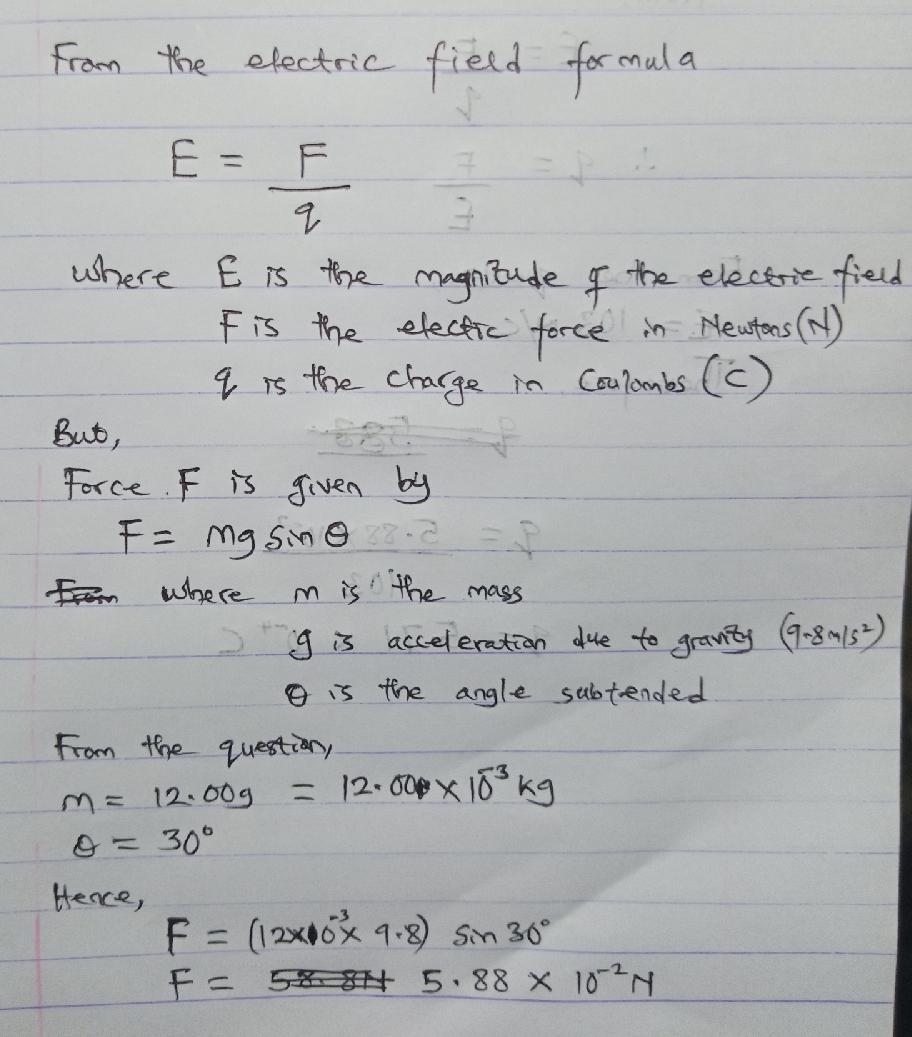 From the electric field formula
E = F
q
where E is the magnitude of the electric field
F is the electic force in Newtons (N)
q is the charge in Coulombs (C)
But,
Force F is given by
F = mg sin θ
From where m is the mass
g is acceleration due to gravity (9.8 m/s²)
θ is the angle subtended
From the question,
m = 12.00g = 12.00 × 10⁻³ kg
θ = 30°
Hence,
F = (12×10⁻³× 9.8) sin 30°
F = 58.8N 5.88 × 10⁻² N